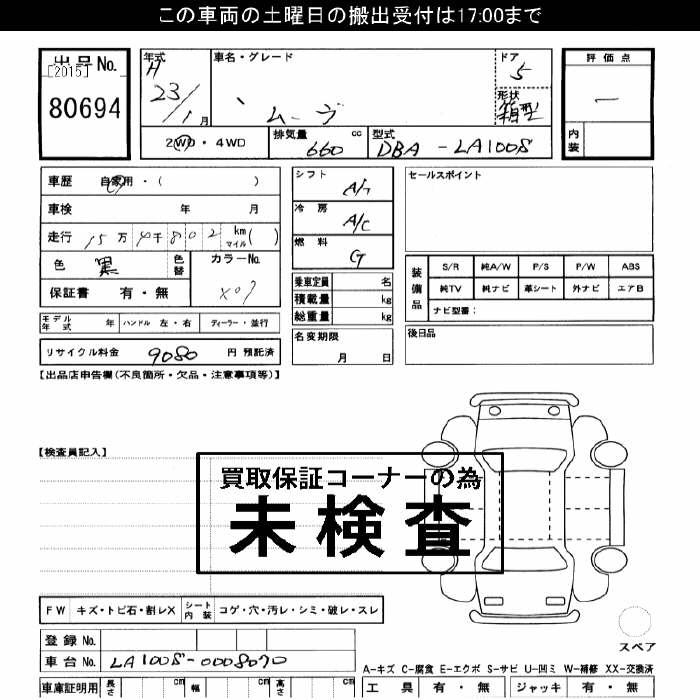 この車両の土曜日の搬出受付は17:00まで
出品No.
[2015]
80694
年式
H
23/1月
車名・グレード
ムーヴ
ドア
5
形状
箱型
評価点
ー
内装
2WD・4WD
排気量 660 cc
型式 DBA-LA100S
車歴 自家用・( )
車検 年 月
走行 15万4千802 km マイル( )
色 黒
色替
カラーNo.
X07
保証書 有・無
モデル年式 年
ハンドル 左・右
ディーラー・並行
リサイクル料金 9080 円 預託済
シフト
冷房 A/C
燃料 G
乗車定員 名
積載量 kg
総重量 kg
名変期限
月 日
セールスポイント
装備品
S/R 純A/W P/S P/W ABS
純TV 純ナビ 革シート 外ナビ エアB
ナビ型番:
後日品
【出品店申告欄(不良箇所・欠品・注意事項等)】
【検査員記入】
買取保証コーナーの為
未検査
FW キズ・トビ石・割レX
シート内装 コゲ・穴・汚レ・シミ・破レ・スレ
スペア
登録No.
車台No. LA100S-0008070
A-キズ C-腐食 E-エクボ S-サビ U-凹ミ W-補修 XX-交換済
車庫証明用 長さ cm 幅 cm 高さ cm
工具 有・無 ジャッキ 有・無